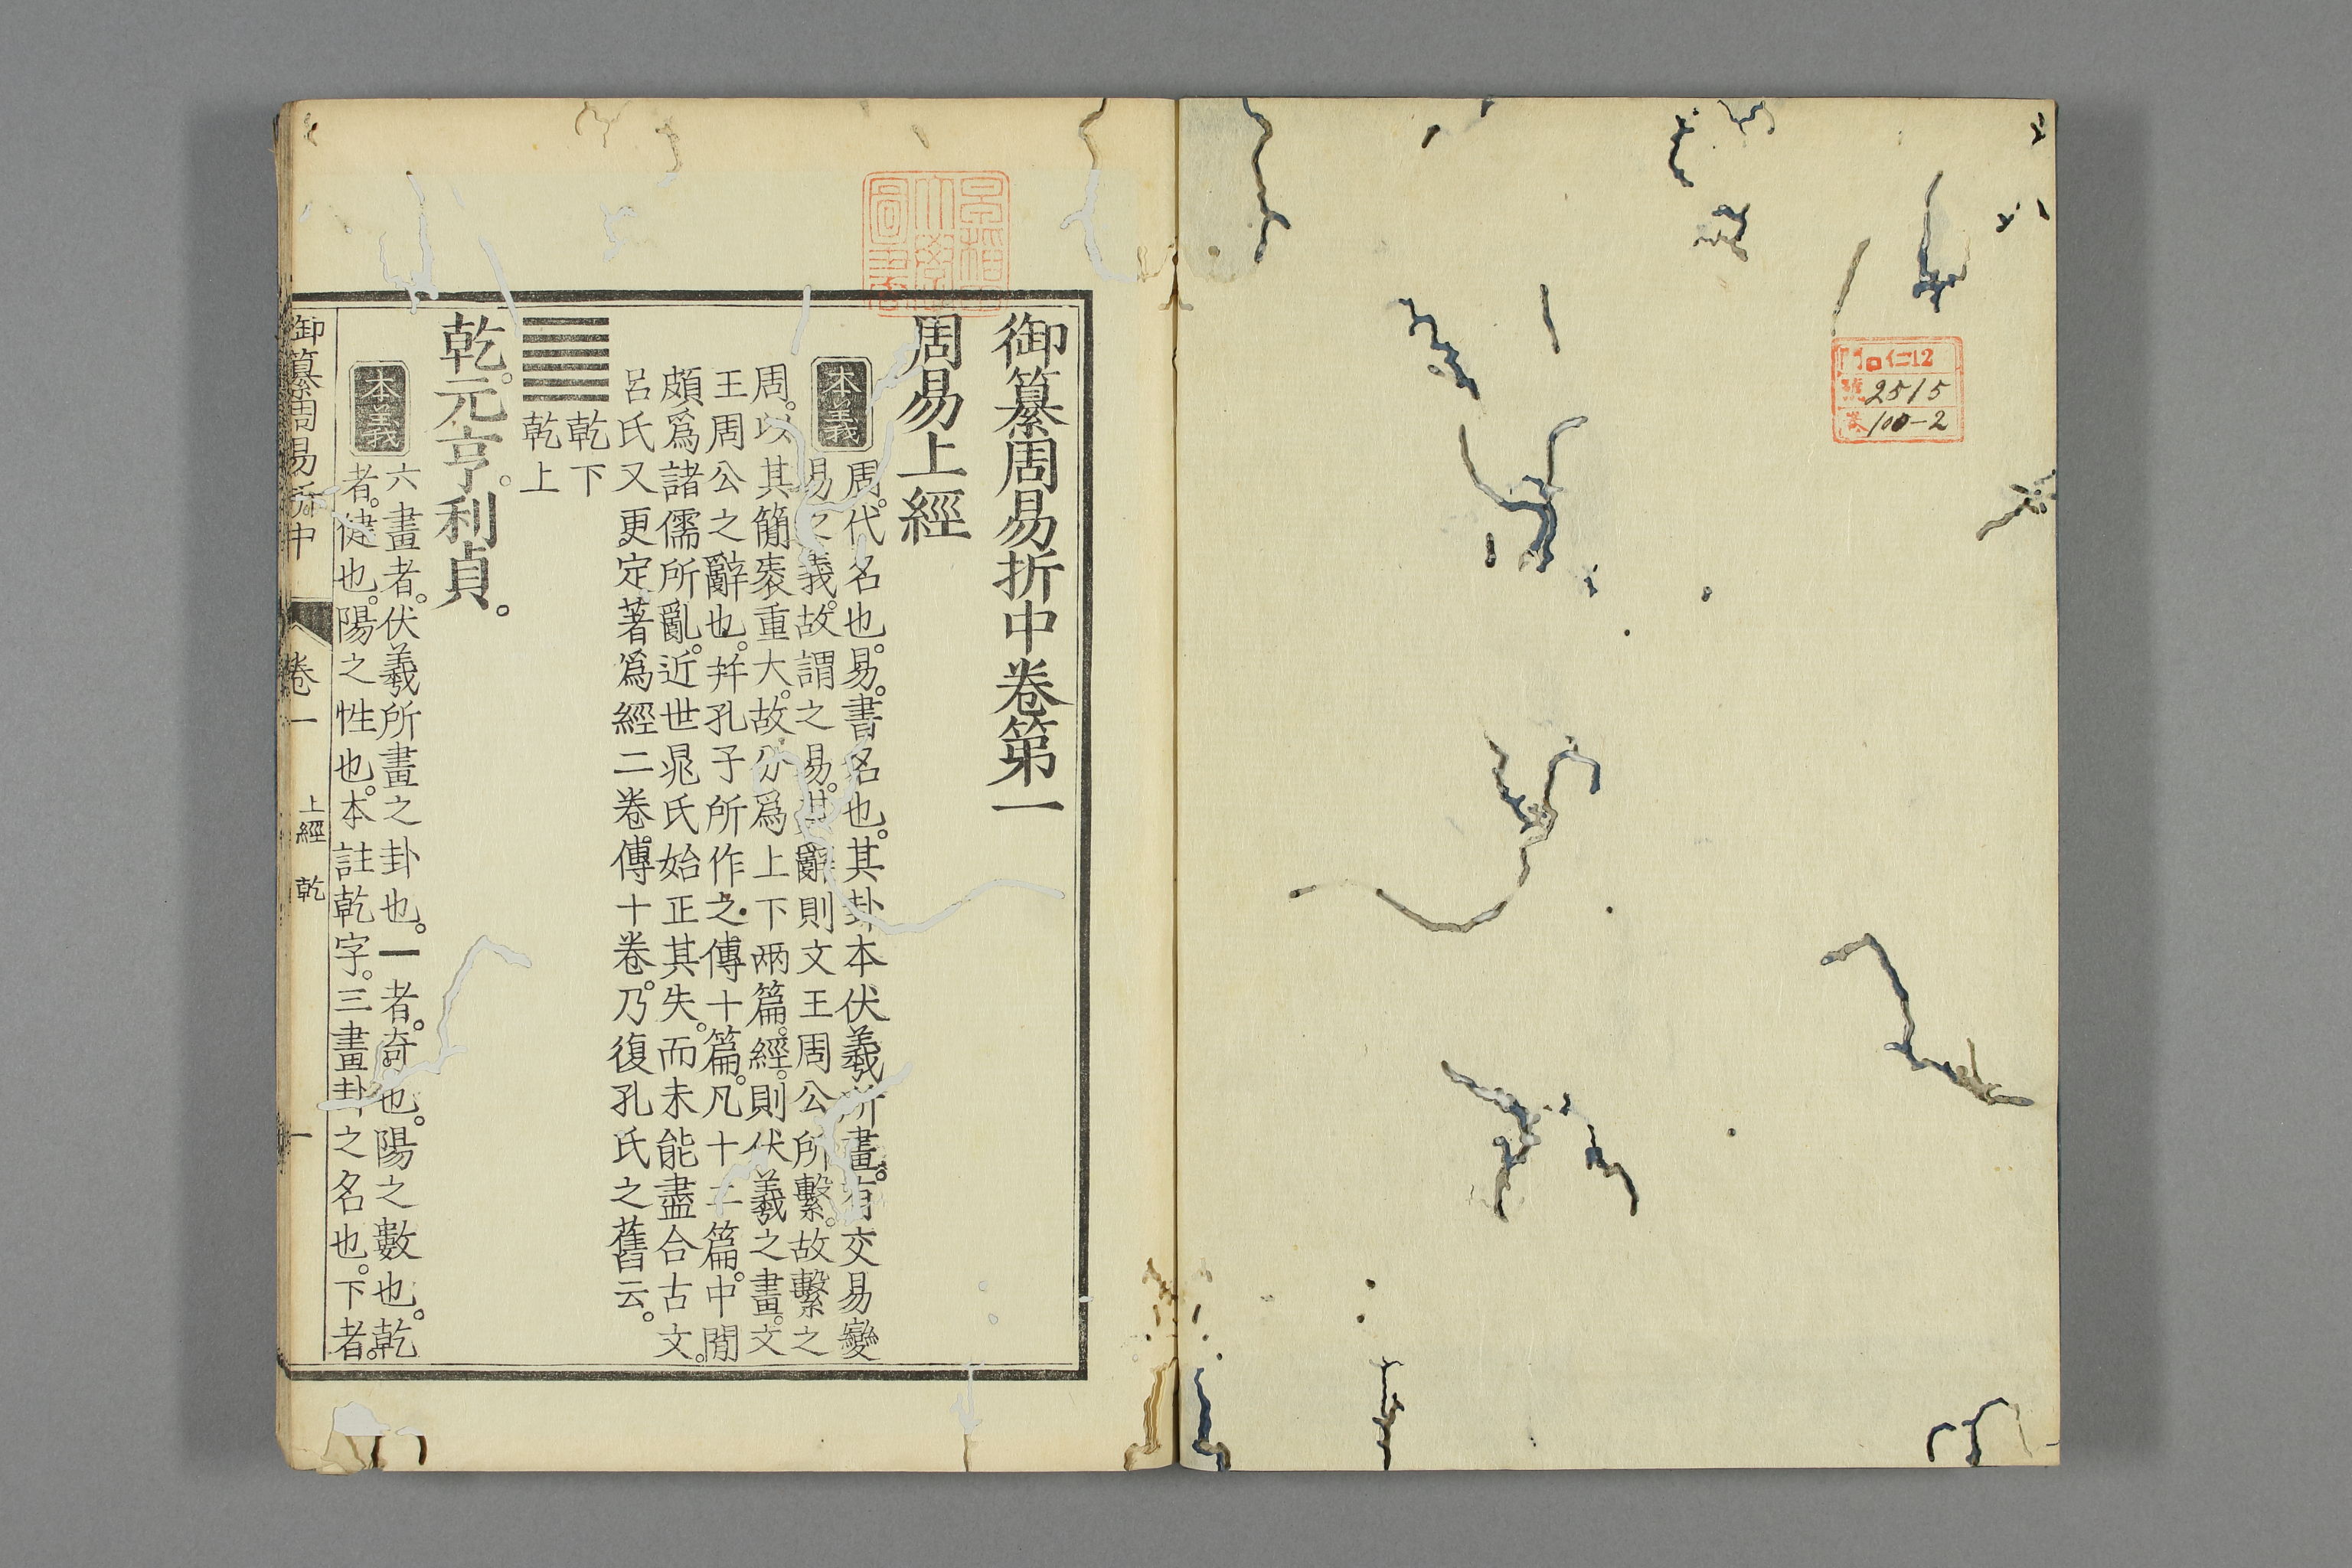 ロ仁12
號 2515
卷 100-2
御纂周易折中卷第一
周易上經
本義
周。代名也。易。書名也。其卦本伏羲所畫。有交易變
易之義。故謂之易。其辭則文王周公所繫。故繫之
周。以其簡袠重大。故分爲上下兩篇。經。則伏羲之畫。文
王周公之辭也。幷孔子所作之傳十篇。凡十二篇。中閒
頗爲諸儒所亂。近世晁氏始正其失。而未能盡合古文。
呂氏又更定著爲經二卷。傳十卷。乃復孔氏之舊云。
乾下
乾上
乾。元亨。利貞。
本義
六畫者。伏羲所畫之卦也。一者。奇也。陽之數也。乾
者。健也。陽之性也。本註乾字。三畫卦之名也。下者。
御纂周易折中 卷一 上經 乾 一